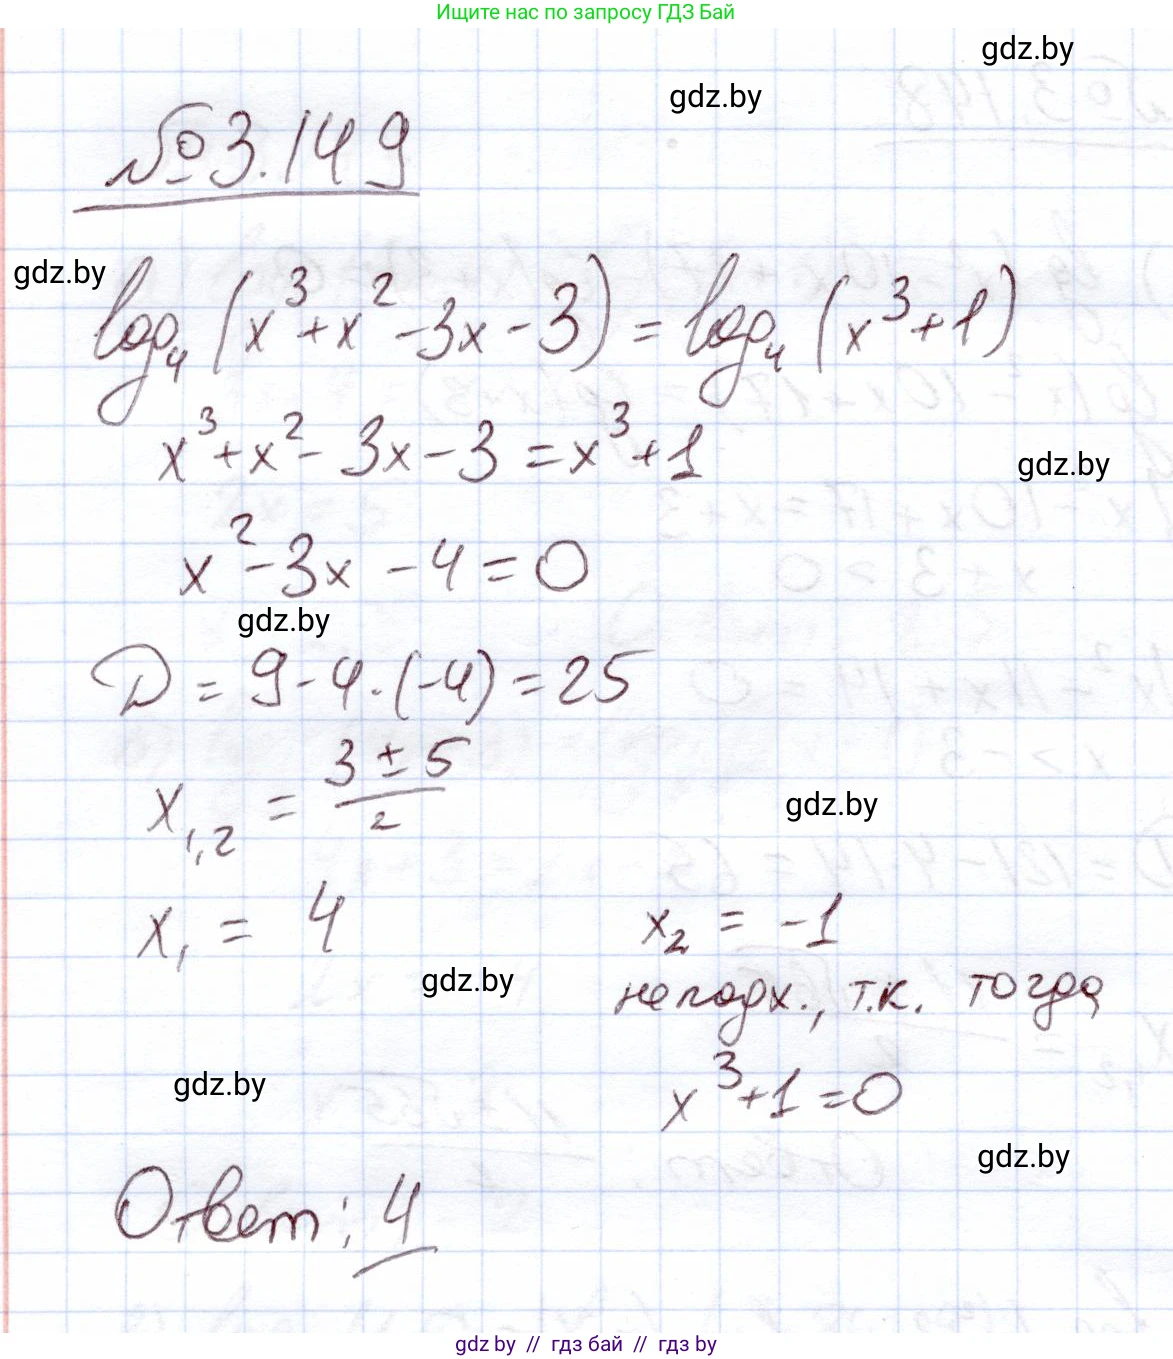 Ищите нас по запросу ГДЗ Бай
gdz.by
gdz.by
№3.149
gdz.by
log₄(x³+x²-3x-3)=log₄(x³+1)
x³+x²-3x-3=x³+1
gdz.by
x²-3x-4=0
gdz.by
D=9-4·(-4)=25
x₁,₂ = (3±5)/2
gdz.by
x₁ = 4
x₂ = -1
gdz.by
не подх., т.к. тогда
gdz.by
x³+1=0
gdz.by
Ответ: 4
gdz.by // гдз бай // гдз by